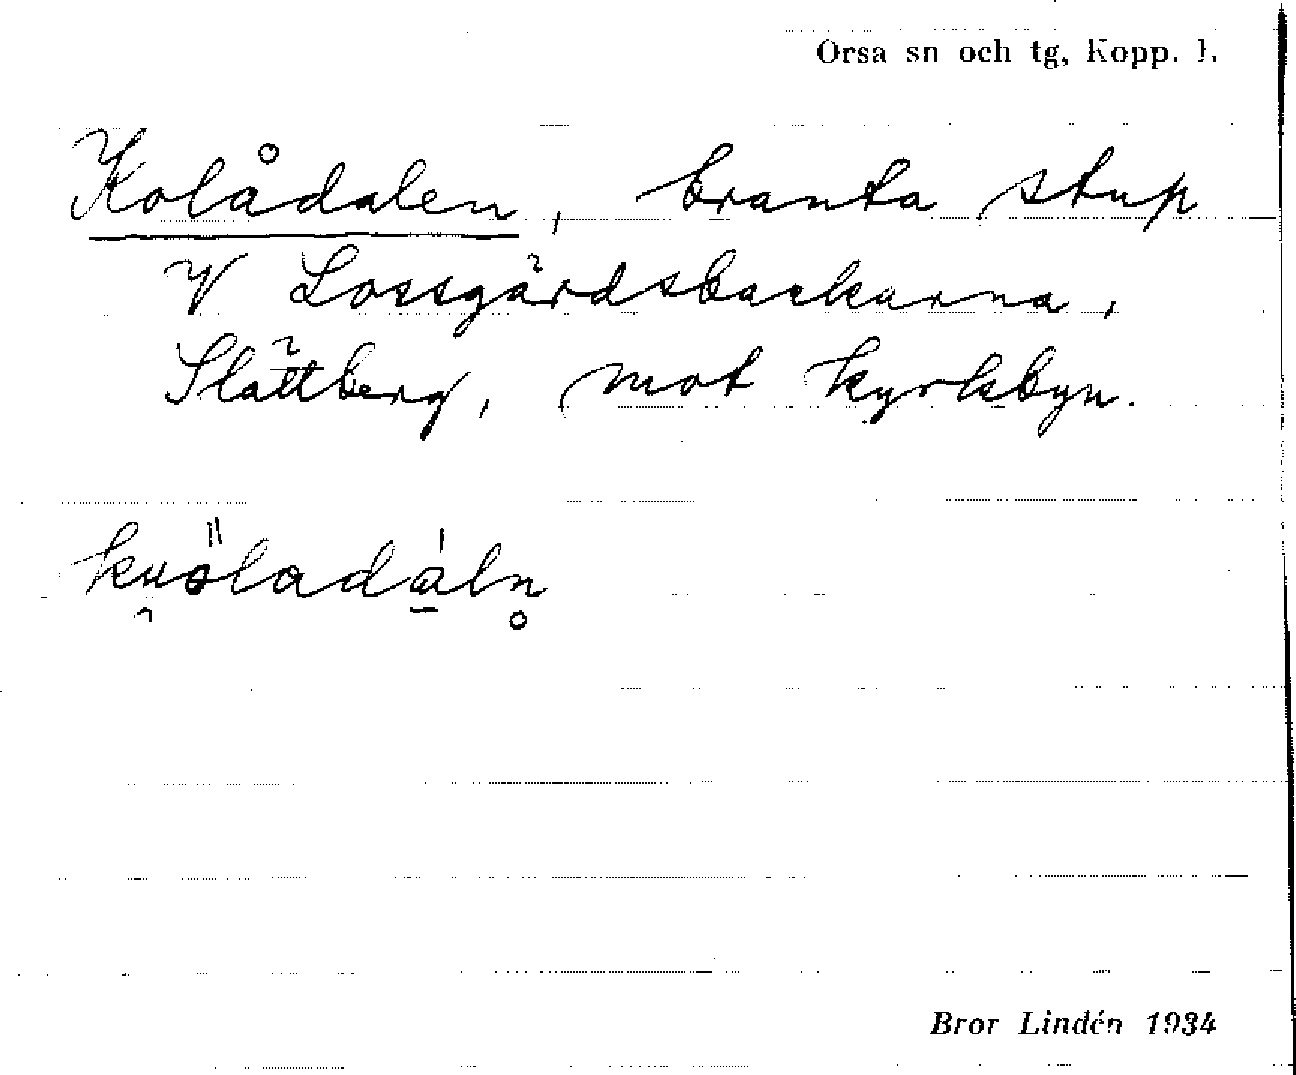 Orsa sn och tg, Kopp. l.
Kolådalen, branta stup
V Lossgårdsbackarna,
Slättberg, mot kyrkbyn.
Bror Lindén 1934